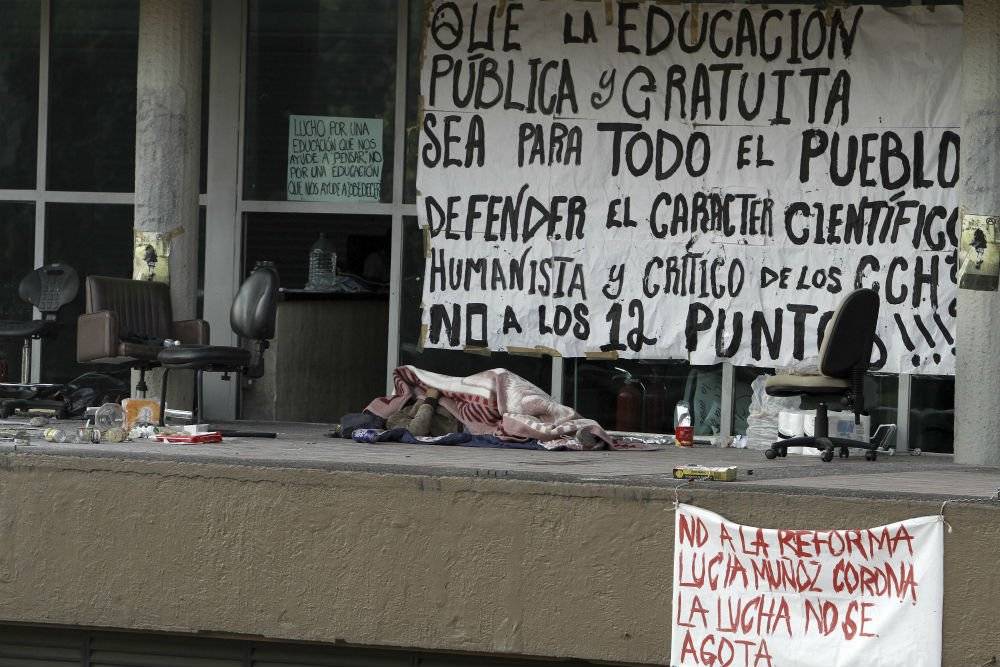 LUCHO POR UNA
EDUCACIÓN QUE NOS
AYUDE A PENSAR, NO
POR UNA EDUCACIÓN
QUE NOS AYUDE A OBEDECER
QUE LA EDUCACIÓN
PÚBLICA Y GRATUITA
SEA PARA TODO EL PUEBLO
DEFENDER EL CARÁCTER CIENTÍFICO
HUMANISTA Y CRÍTICO DE LOS CCH'S
NO A LOS 12 PUNTOS!!!!
NO A LA REFORMA
LUCIA MUÑOZ CORONA
LA LUCHA NO SE.
AGOTA